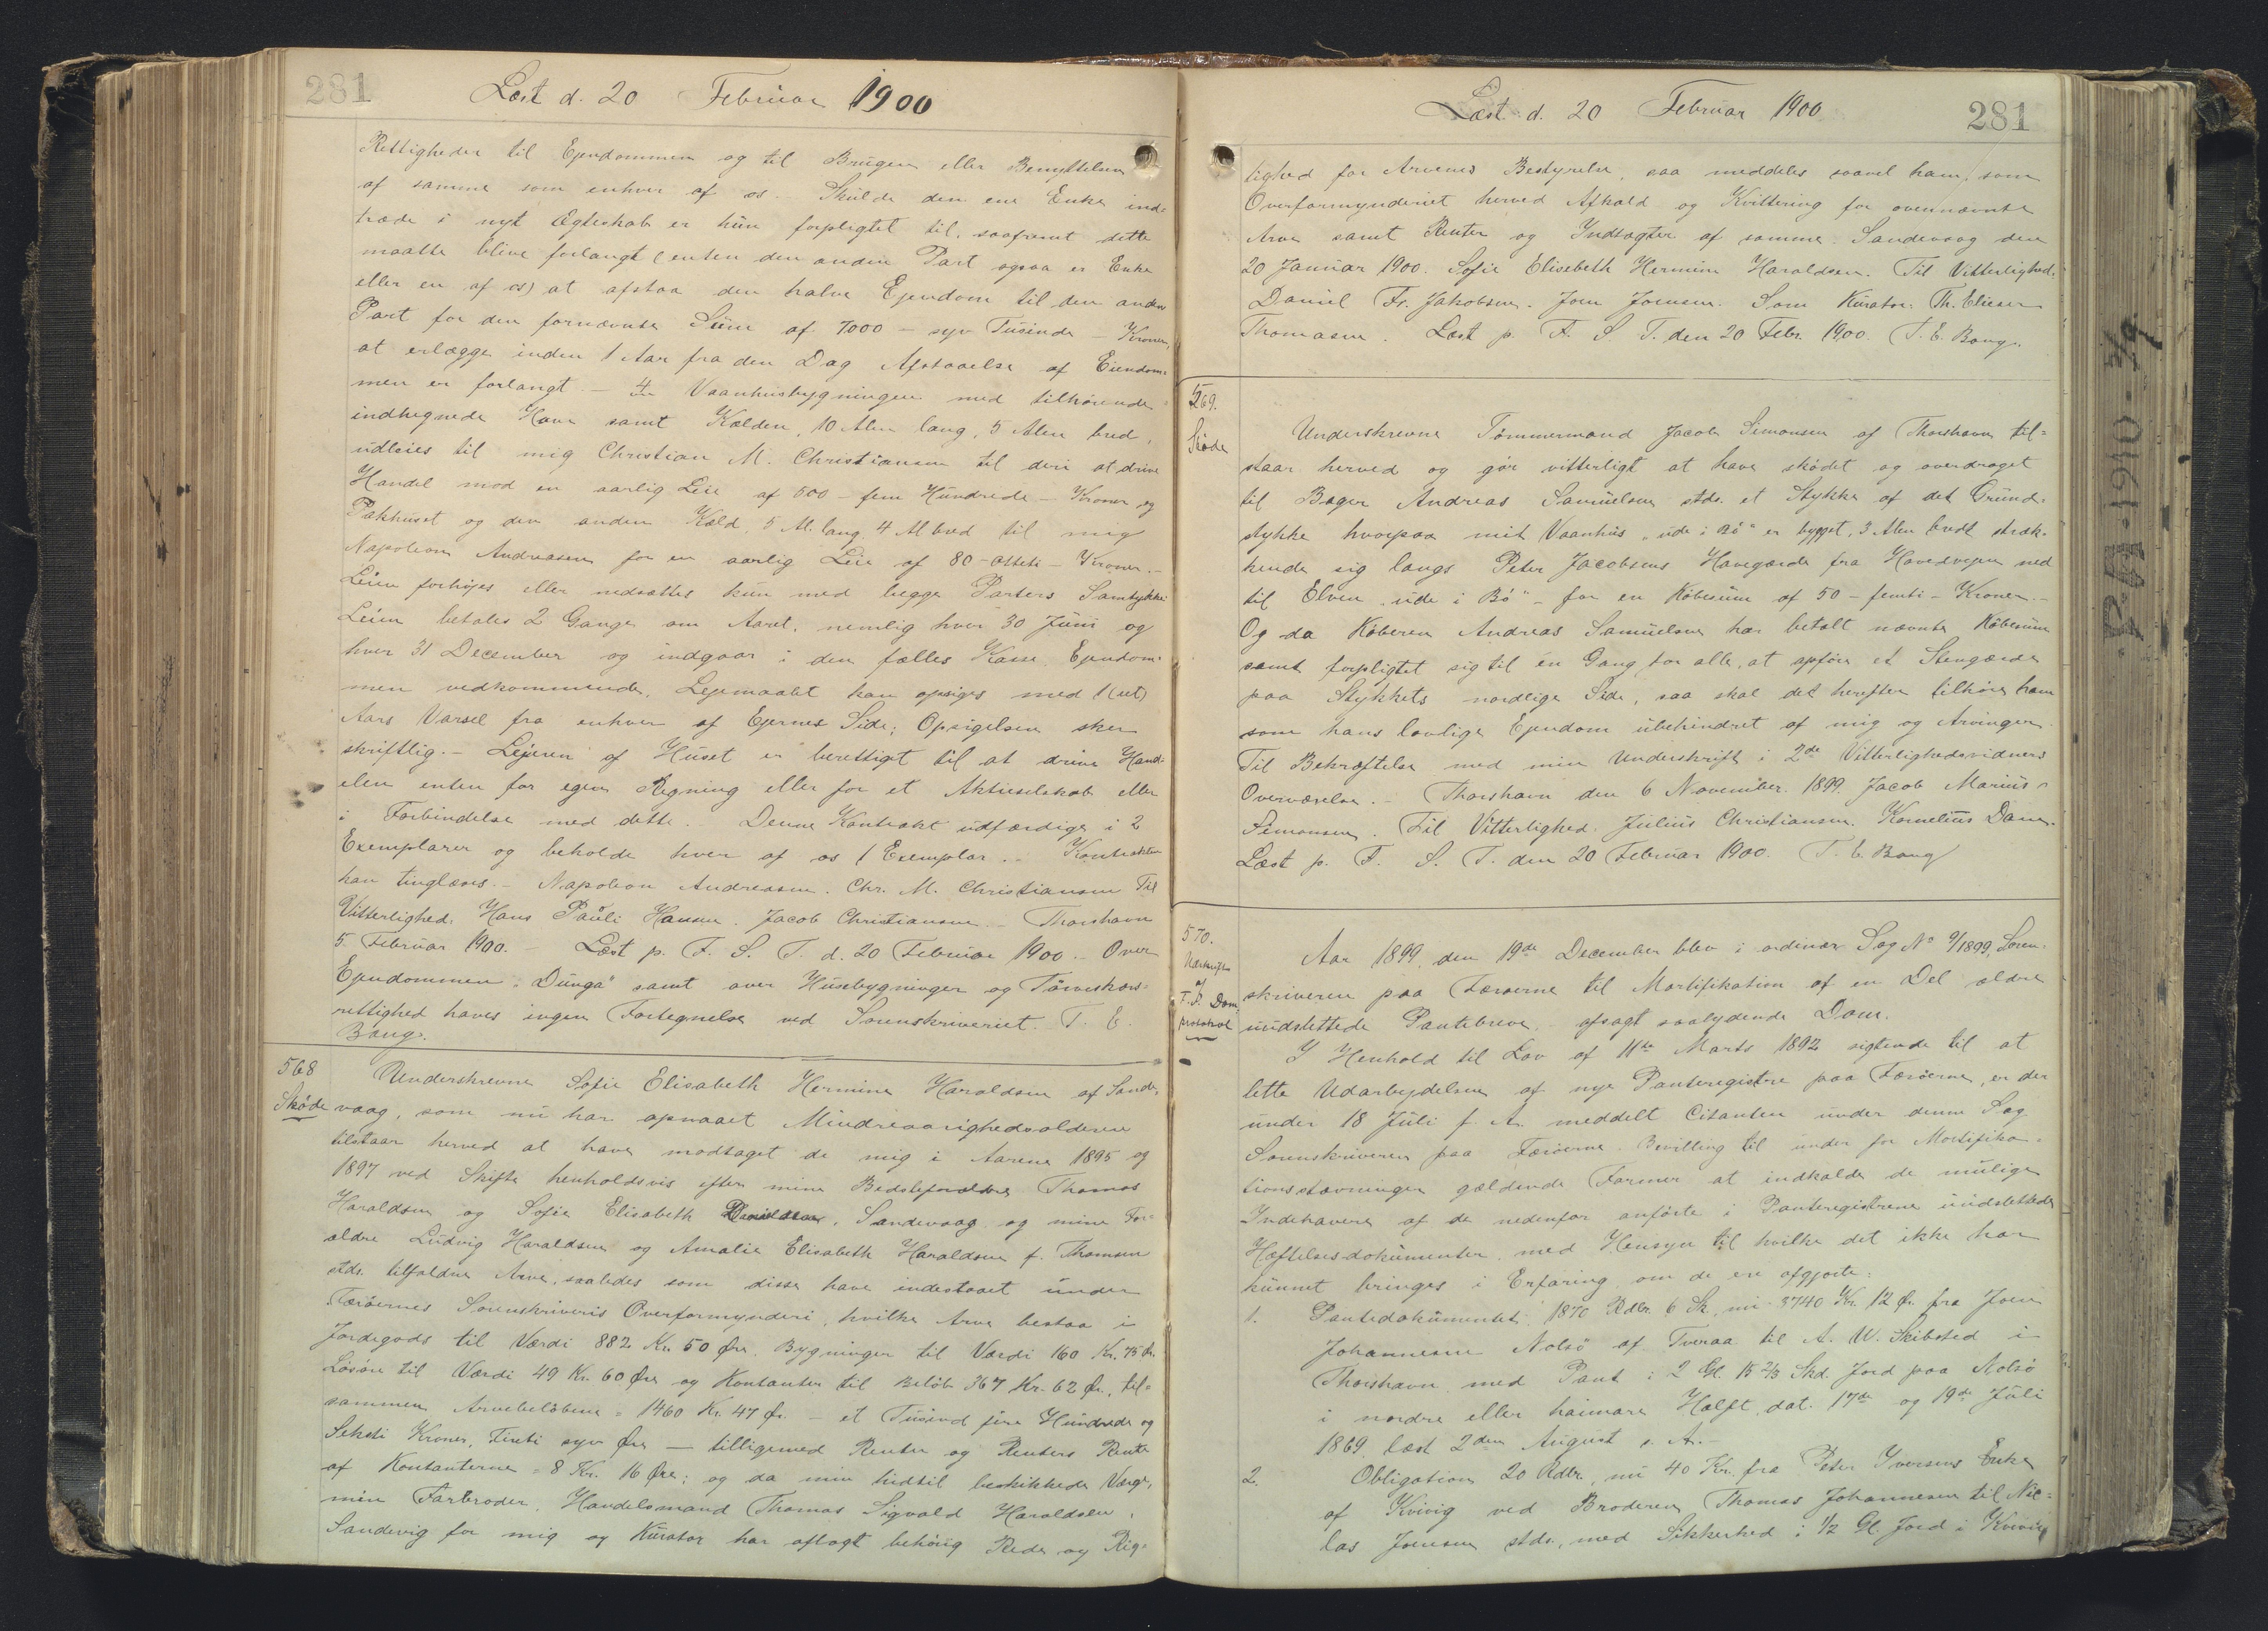 281
Læst d. 20 Februar 1900
Rettigheder til Ejendommen og til Brugen eller Benyttelsen
af samme som enhver af os. Skulde den ene Enke ind-
træde i nyt Ægteskab er hun forpligtet til, saafremt dette
maatte blive forlangt (enten den anden Part ogsaa er Enke
eller en af os) at afstaa den halve Ejendom til den anden
Part for den fornævnte Sum af 7000 – syv Tusinde – Kroner,
at erlægge inden 1 Aar fra den Dag Afstaaelse af Eiendom-
men er forlangt. – 4 Vaanhusbygningen med tilhørende
indhegnede Have samt Kælden, 10 Alen lang, 5 Alen bred,
udleies til mig Christian M. Christiansen til deri at drive
Handel mod en aarlig Leie af 500 – fem Hundrede – Kroner og
Pakhuset og den anden Kæld, 5 Al. lang, 4 Al bred til mig
Napoleon Andreasen for en aarlig Leie af 80 – otteti – Kroner. –
Leien forhøjes eller nedsættes kun med begge Parters Samtykke
Leien betales 2 Gange om Aaret, nemlig hver 30 Juni og
hver 31 December og indgaar i den fælles Kasse Ejendom-
men vedkommende. Lejemaalet kan opsiges med 1 (et)
Aars Varsel fra enhver af Ejernes Side; Opsigelsen sker
skriftlig. – Lejeren af Huset er berettiget til at drive Hand-
elen enten for egen Regning eller for et Aktieselskab eller
i Forbindelse med dette. Denne Kontrakt udfærdiges i 2
Exemplarer og beholde hver af os 1 Exemplar. – Kontrakten
kan tinglæses. – Napoleon Andreasen. Chr. M. Christiansen Til
Vitterlighed. Hans Pauli Hansen. Jacob Christiansen. – Thorshavn
5. Februar 1900. – Læst p. F. S. T. d. 20 Februar 1900. – Over
Ejendommen "Dunga" samt over Husebygninger og Tørveskærs-
rettighed haves ingen Fortegnelse ved Sorenskriveriet. T. E.
Bang.
568
Skøde
Underskrevne Sofie Elisabeth Hermine Haraldsen af Sande-
vaag, som nu har opnaaet Mindreaarighedsalderen
tilstaar herved at have modtaget de mig i Aarene 1895 og
1897 ved Skifte henholdsvis efter mine Bedsteforældre Thomas
Haraldsen og Sofie Elisabeth Danielsen, Sandevaag og mine For-
ældre Ludvig Haraldsen og Amalie Elisabeth Haraldsen f. Thomsen
stds. tilfaldne Arve, saaledes som disse have indestaaet under
Færøernes Sorenskriveris Overformynderi, hvilke Arve bestaa i
Jordegods til Værdi 882 Kr. 50 Øre. Bygninger til Værdi 160 Kr. 75 Ør.
Løsøre til Værdi 49 Kr. 60 Øre og Kontanter til Beløb 367 Kr. 62 Ør., til-
sammen Arvebeløbene = 1460 Kr. 47 Ør. – et Tusind fire Hundrede og
Seksti Kroner, Firti syv Øre — tilligemed Renter og Renters Rente
af Kontanterne = 8 Kr. 16 Øre; og da min hidtil beskikkede Værge,
min Farbroder, Handelsmand Thomas Sigvald Haraldsen,
Sandevig for mig og Kurator har aflagt behørig Rede og Rig-
Læst d. 20 Februar 1900
281
tighed for Arvenes Bestyrelse, saa meddeles saavel ham, som
Overformynderiet herved Afkald og Kvittering for ovennævnte
Arve samt Renter og Indtægter af samme. Sandevaag den
20 Januar 1900. Sofie Elisebeth Hermine Haraldsen. Til Vitterlighed.
Daniel Fr. Jakobsen. Joen Joensen. Som Kurator: Th. Elieser
Thomasen. Læst p. F. S. T. den 20 Febr. 1900. T. E. Bang.
569.
Skøde
Underskrevne Tømmermand Jacob Simonsen af Thorshavn til-
staar herved og gør vitterligt at have skødet og overdraget
til Bager Andreas Samuelsen stds. et Stykke af det Grund-
stykke hvorpaa mit Vaanhus "ude i Bø" er bygget, 3 Alen bredt stræk-
kende sig langs Peter Jacobsens Havegærde fra Hovedvejen ned
til Elven "ude i Bø" – for en Købesum af 50 – femti – Kroner. –
Og da Køberen Andreas Samuelsen har betalt nævnte Købesum
samt forpligtet sig til én Gang for alle, at opføre et Stengærde
paa Stykkets nordlige Side, saa skal det herefter tilhøre ham
som hans lovlige Ejendom ubehindret af mig og Arvinger.
Til Bekræftelse med min Underskrift i 2de Vitterlighedsvidners
Overværelse. – Thorshavn den 6 November 1899. Jacob Marius
Simonsen. Til Vitterlighed. Julius Christiansen. Kornelius Dam.
Læst p. F. S. T. den 20 Februar 1900. T. E. Bang
570.
Udskrift
af
F. S. Dom
protokol
Aar 1899, den 19de December blev i ordinær Sag No 9/1899, Soren-
skriveren paa Færøerne til Mortifikation af en Del ældre
uudslettede Pantebreve, – afsagt saalydende Dom.
I Henhold til Lov af 11te Marts 1892 sigtende til at
lette Udarbejdelsen af nye Panteregistre paa Færøerne, er der
under 18 Juli f. A. meddelt Citanten under denne Sag
Sorenskriveren paa Færøerne. Bevilling til under for Mortifika-
tionsstævninger gældende Former at indkalde de mulige
Indehavere af de nedenfor anførte i Panteregistrene uudslettede
Hæftelsesdokumenter, med Hensyn til hvilke det ikke har
kunnet bringes i Erfaring om de ere afgjorte:
1. Pantedokument 1870 Rdlr. 6 Sk., nu 3740 Kr. 12 Ør. fra Joen
Johannesen Nolsø af Tveraa til A. W. Skibsted i
Thorshavn, med Pant i 2 Gl. 15 2/3 Skd. Jord paa Nolsø
i nordre eller haimare Hælft, dat. 17de og 19de Juli
1869, læst 2den August s. A.
2. Obligation 20 Rdlr., nu 40 Kr. fra Peter Iversens Enke
af Kvivig ved Broderen Thomas Johannesen til Nic-
las Joensen stds., med Sikkerhed i 1/2 Gl. Jord i Kvivig